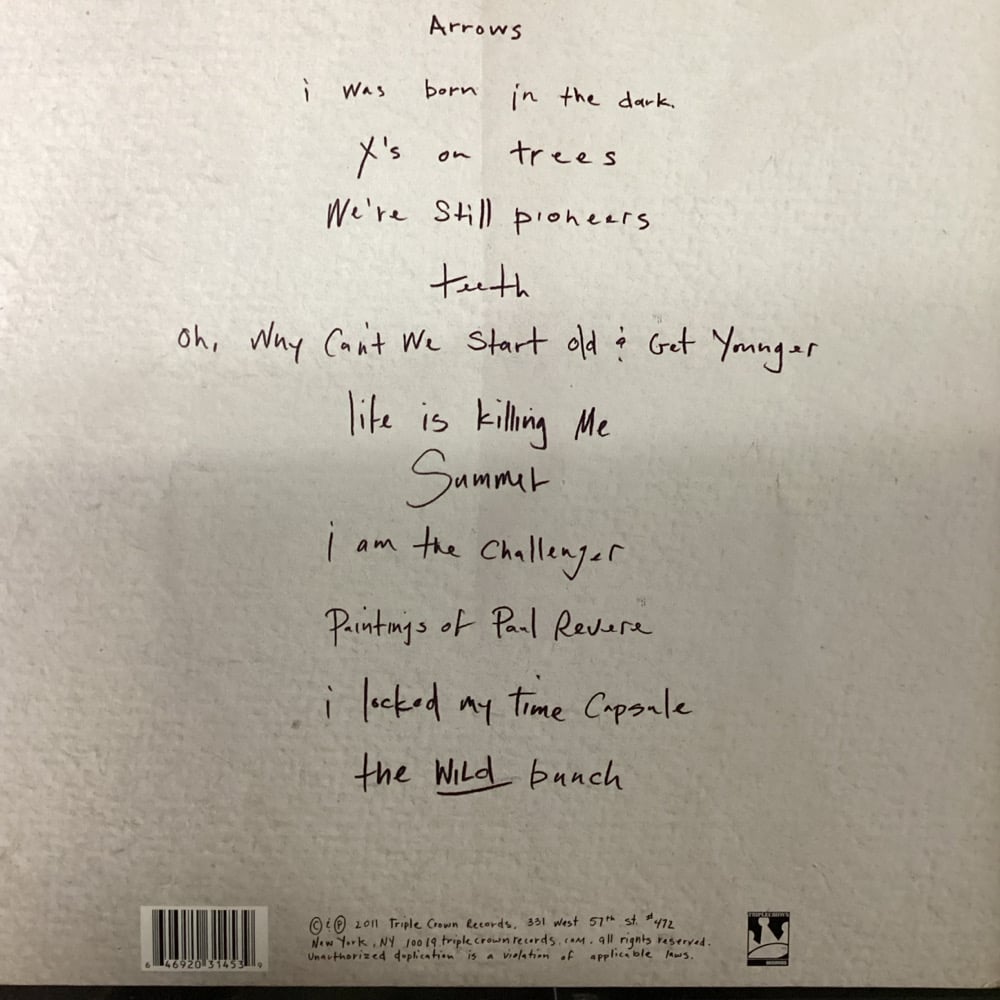 Arrows
i was born in the dark.
X's on trees
We're Still pioneers
teeth
oh, Why Can't We Start old & Get Younger
life is killing Me
Summer
i am the Challenger
Paintings of Paul Revere
i locked my time Capsule
the WILD bunch
© & ℗ 2011 Triple Crown Records, 331 West 57th St. #472
New York, NY 10019 triplecrownrecords.com. all rights reserved.
Unauthorized duplication is a violation of applicable laws.
6 46920 31453 9
TRIPLE CROWN
RECORDS